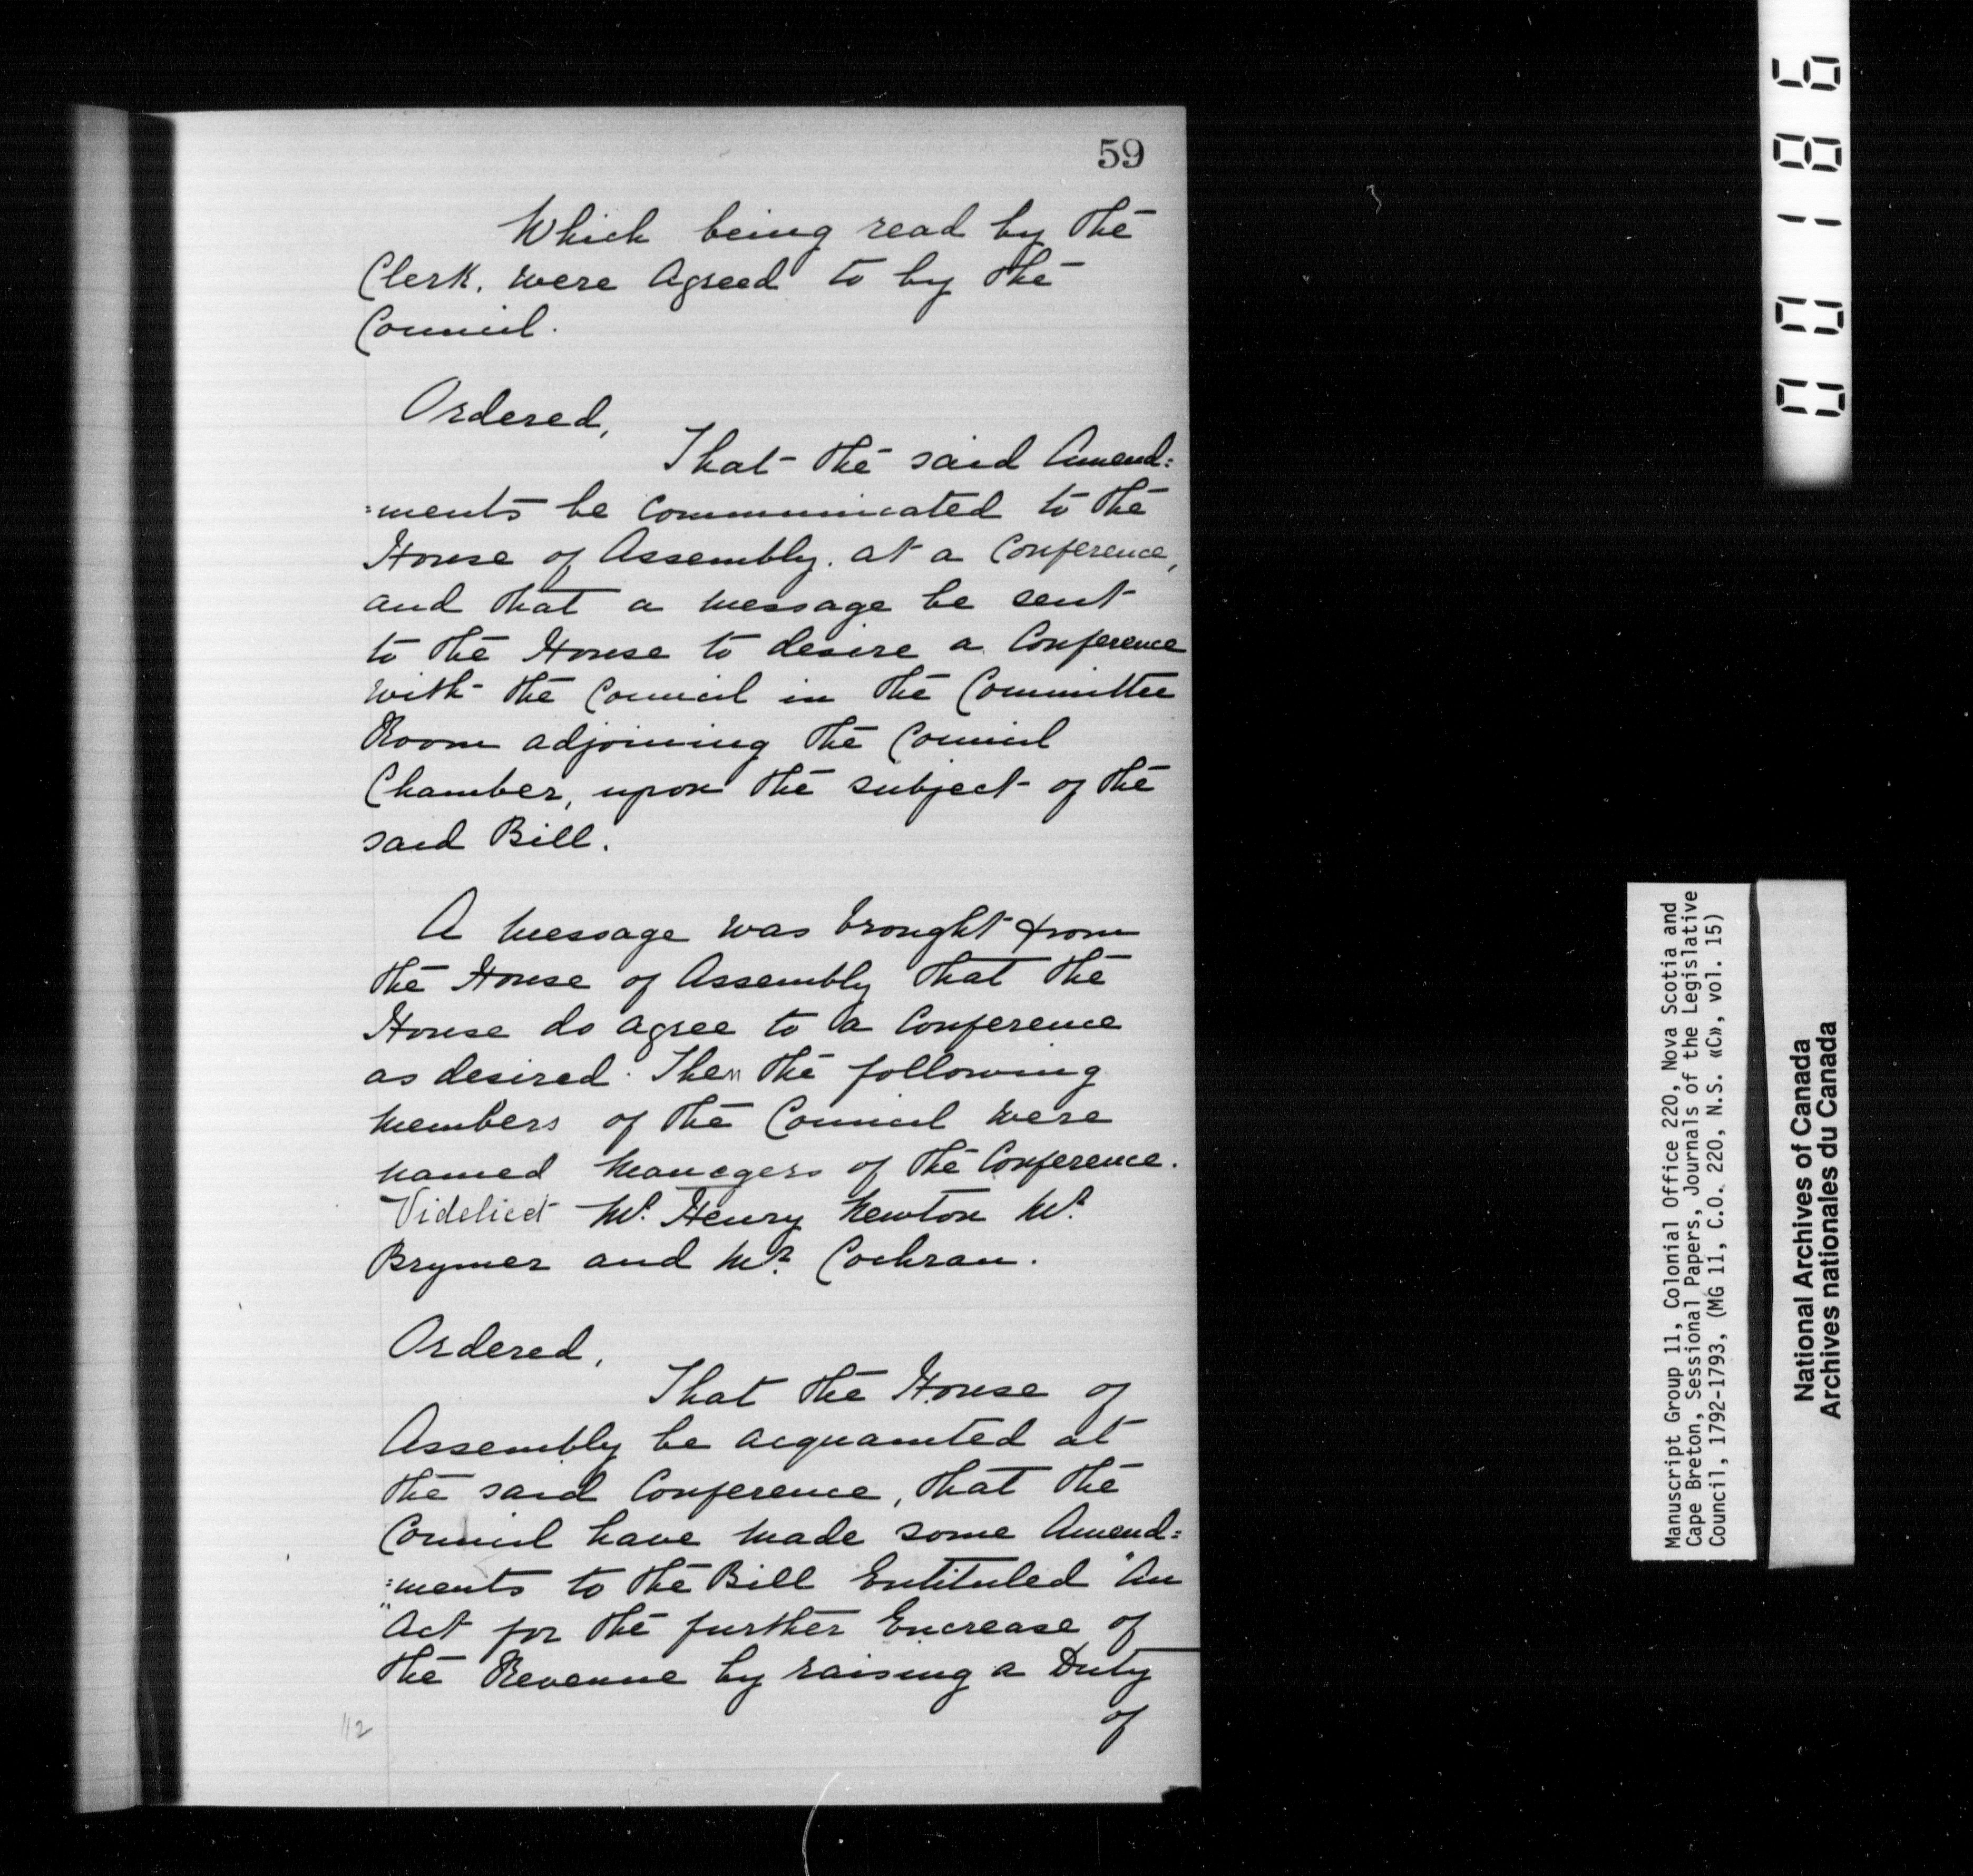 59
Which being read by the
Clerk, were Agreed to by the
Council.
Ordered,
That the said Amend=
=ments be communicated to the
House of Assembly. at a Conference,
and that a Message be sent
to the House to desire a Conference
with the Council in the Committee
Room adjoining the Council
Chamber, upon the subject of the
said Bill.
A Message was brought from
the House of Assembly that the
House do agree to a Conference
as desired. Then the following
Members of the Council were
named Managers of the Conference.
Videlicet Mr. Henry Newton Mr.
Brymer and Mr. Cochran.
Ordered,
That the House of
Assembly be acquainted at
the said Conference, that the
Council have made some Amend=
=ments to the Bill Entituled "An
"Act for the further Encrease of
the Revenue by raising a Duty
of
112
00186
Manuscript Group 11, Colonial Office 220, Nova Scotia and
Cape Breton, Sessional Papers, Journals of the Legislative
Council, 1792-1793, (MG 11, C.O. 220, N.S. «C», vol. 15)
National Archives of Canada
Archives nationales du Canada